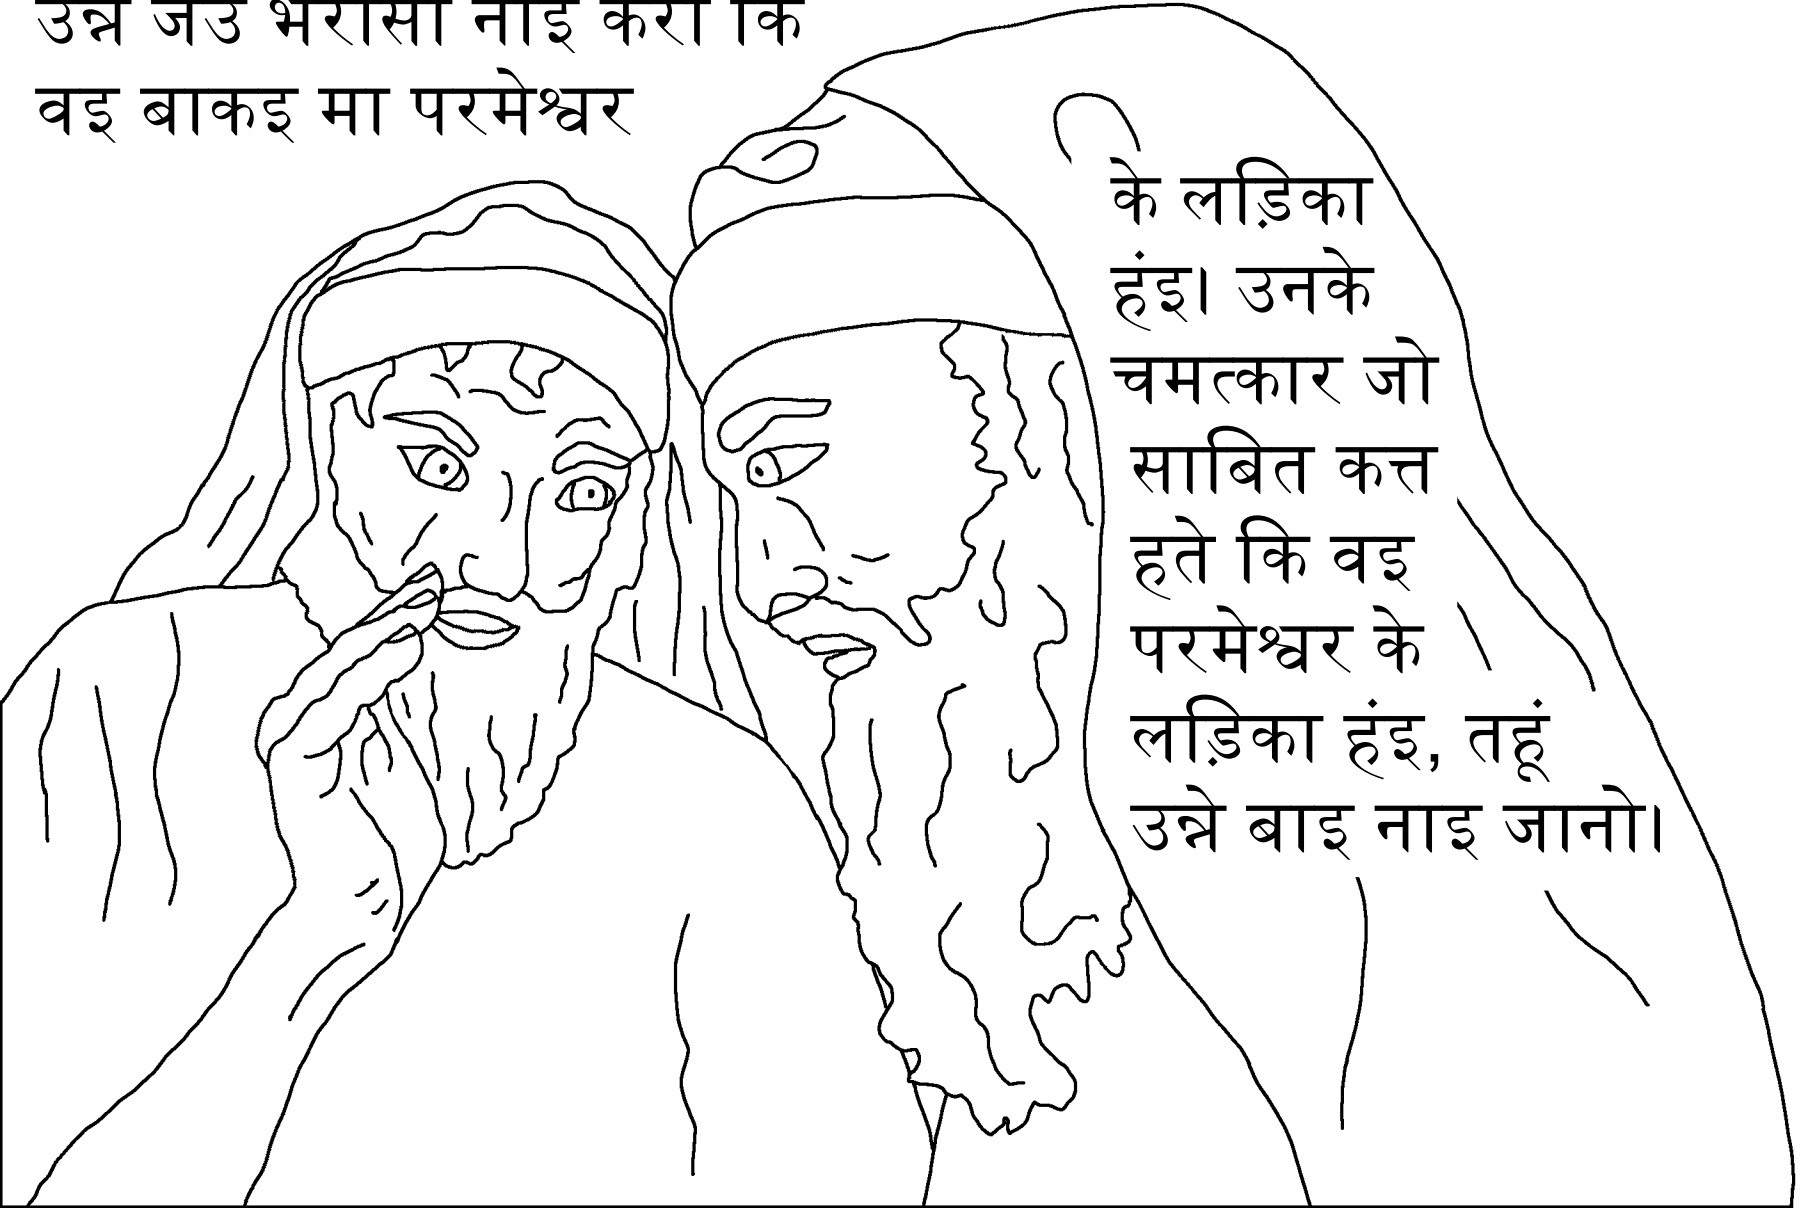 उन्ने जउ भरोसो नाइ करो कि
वइ बाकइ मा परमेश्वर
के लड़िका
हंइ। उनके
चमत्कार जो
साबित कत्त
हते कि वइ
परमेश्वर के
लड़िका हंइ, तहूं
उन्ने बाइ नाइ जानो।